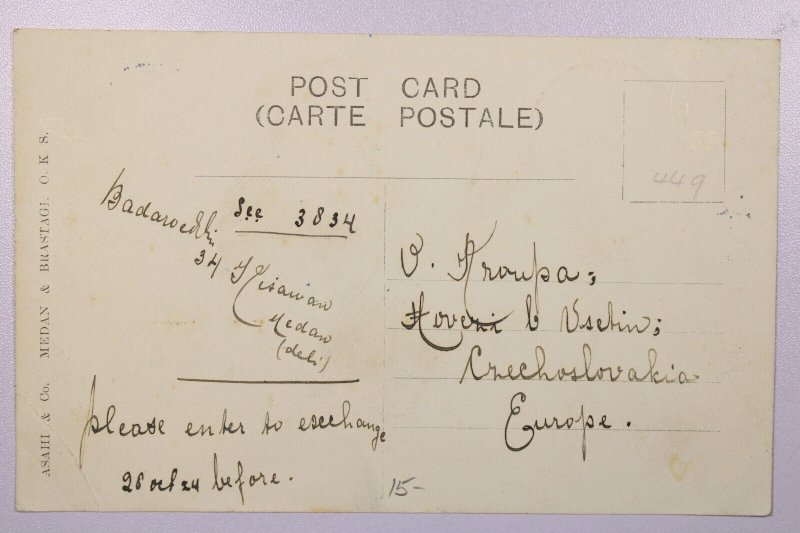 POST CARD
(CARTE POSTALE)
449
ASAHI & Co. MEDAN & BRASTAGI. O. K. S.
See 3834
34 Kesawan
Medan
(deli)
please enter to esechange
26 oct 24 before.
V. Kroupa;
u Vsetin;
Czechoslovakia
Europe.
15-